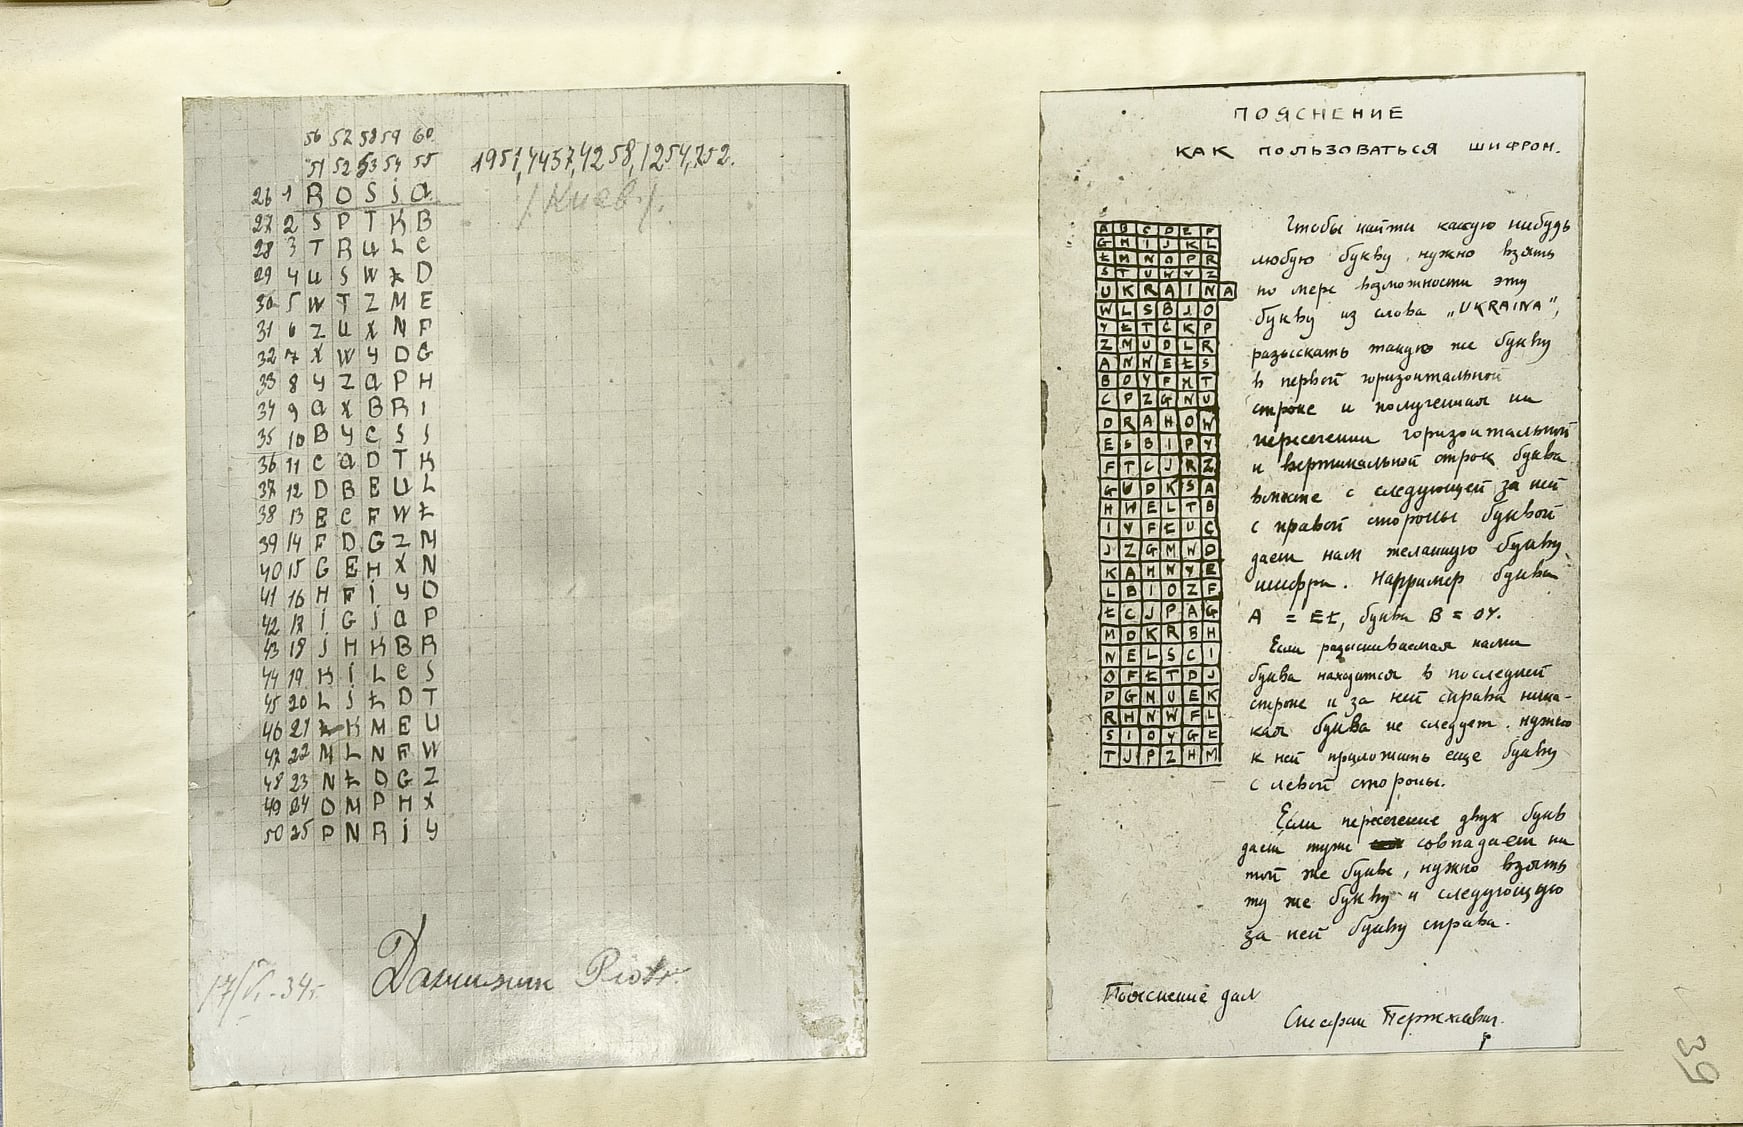 56 57 58 59 60
51 52 53 54 55
26 1 R O S J A
27 2 S P T K B
28 3 T R U L C
29 4 U S W Ł D
30 5 W T Z M E
31 6 Z U X N F
32 7 X W Y O G
33 8 Y Z A P H
34 9 A X B R I
35 10 B Y C S J
36 11 C A D T K
37 12 D B E U L
38 13 E C F W Ł
39 14 F D G Z M
40 15 G E H X N
41 16 H F I Y O
42 17 I G J A P
43 18 J H K B R
44 19 K I L C S
45 20 L J Ł D T
46 21 Ł K M E U
47 22 M L N F W
48 23 N Ł O G Z
49 24 O M P H X
50 25 P N R I Y
1951, 4457, 4258, 1254, 752.
/Киев/.
17/VI.-34г.
Piotr
ПОЯСНЕНИЕ
КАК ПОЛЬЗОВАТЬСЯ ШИФРОМ.
A B C D E F
G H I J K L
Ł M N O P R
S T U W Y Z
U K R A I N A
W L S B J O
Y Ł T C K P
Z M U D L R
A N W E Ł S
B O Y F M T
C P Z G N U
D R A H O W
E S B I P Y
F T C J R Z
G U D K S A
H W E L T B
I Y F Ł U C
J Z G M W D
K A H N Y E
L B I O Z F
Ł C J P A G
M D K R B H
N E L S C I
O F Ł T D J
P G M U E K
R H N W F L
S I O Y G Ł
T J P Z H M
Чтобы найти какую нибудь
любую букву, нужно взять
по мере возможности эту
букву из слова „UKRAINA",
разыскать такую же букву
в первой горизонтальной
строке и полученная на
пересечении горизонтальной
и вертикальной строк буква
вместе с следующей за ней
с правой стороны буквой
дает нам желанную букву
шифра. Например буква
A = EŁ, буква B = OY.
Если разыскиваемая нами
буква находится в последней
строке и за ней справа ника-
кая буква не следует, нужно
к ней приложить еще букву
с левой стороны.
Если пересечение двух букв
дает совпадает на
той же букве, нужно взять
ту же букву и следующую
за ней букву справа.
Пояснение дал
Стефан
39